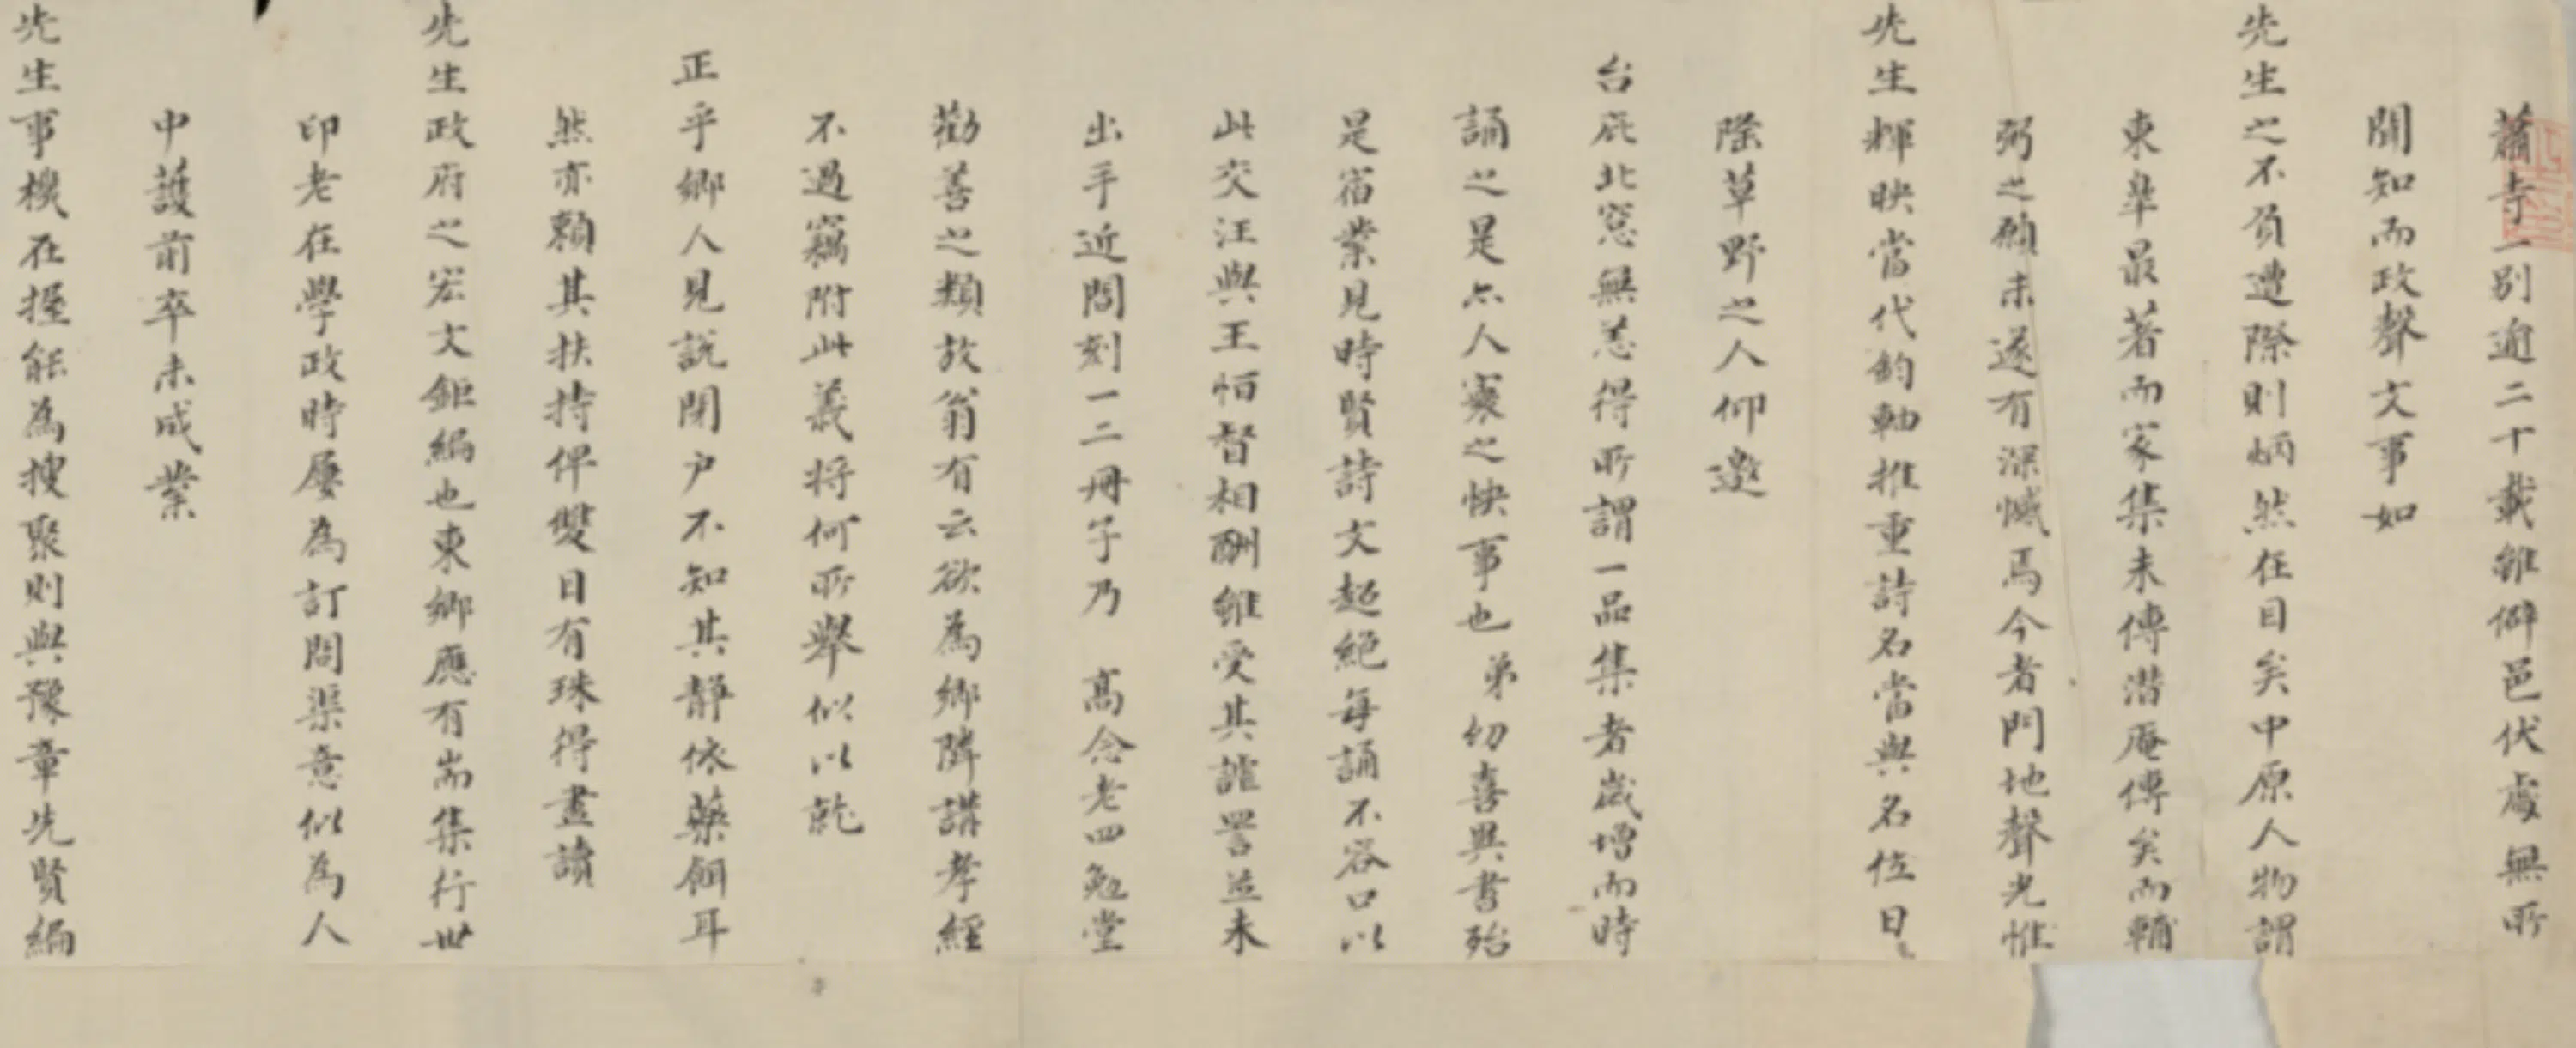 蕭寺一別逾二十載雖僻邑伏處無所
聞知而政聲文事如
先生之不負遭際則炳然在目矣中原人物謂
東皐最著而家集未傳潜庵傳矣而輔
弼之願未遂有深憾焉今者門地聲光惟
先生輝映當代鈞軸推重詩名當與名位日
除草野之人仰邀
台庇北窓無恙得所謂一品集者歲增而時
誦之是亦人寰之快事也弟幼喜異書殆
是宿業見時賢詩文超絕每誦不容口以
此交汪與王怕督相酬雖受其誰詈並未
出手近間刻一二冊子乃 高念老四勉堂
勸善之類放翁有云欲為鄉隣講孝經
不過竊附此義將何所舉似以乾
正乎鄉人見說閉户不知其靜依藥餌耳
然亦賴其扶持俾雙目有珠得盡讀
先生政府之宏文鉅編也東鄉應有耑集行世
印老在學政時屢為訂問渠意似為人
中護前卒未成業
先生事機在握能為搜聚則與豫章先賢編